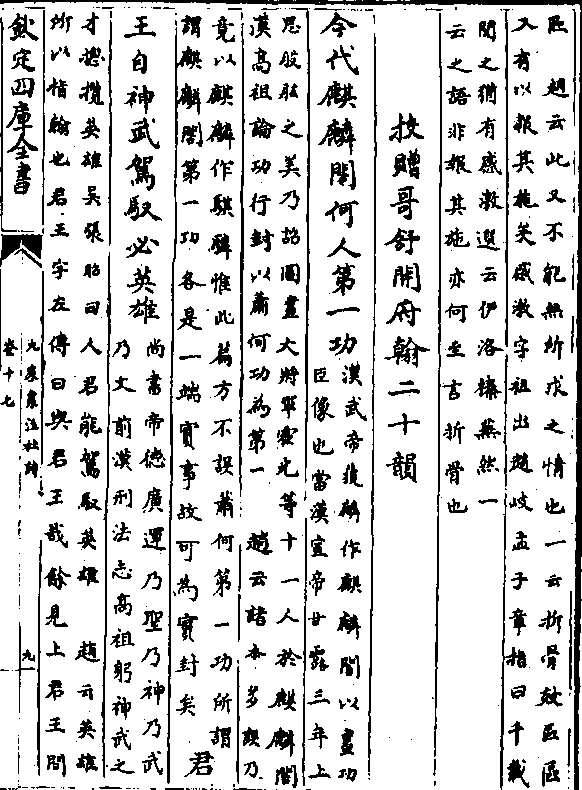 區　趙云此又不能無所戌之情也一云折骨效區區
又有以報其施矣感激字祖出趙岐孟子章指曰千載
聞之猶有感激選云伊洛榛蕪然一
云之語非報其施亦何至言折骨也
投贈哥舒開府翰二十韻
今代麒麟閣何人第一功漢武帝獲麟作麒麟閣以畫功
臣像也當漢宣帝甘露三年上
思股肱之美乃詔圖畫大將軍霍光等十一人於麒麟閣
漢高祖論功行封以蕭何功為第一　趙云諸本多誤乃
竟以麒麟作騏驎惟此為方不誤蕭何第一功所謂
謂麒麟閣第一功各是一端實事故可為實封矣　君
王自神武駕馭必英雄尚書帝德廣運乃聖乃神乃武
乃文前漢刑法志高祖躬神武之
才摠攬英雄吳張昭曰人君能駕馭英雄　趙云英雄
所以指翰也君王字左傳曰與君王哉餘見上君王問
欽定四庫全書
九家集注杜詩
卷十七
九